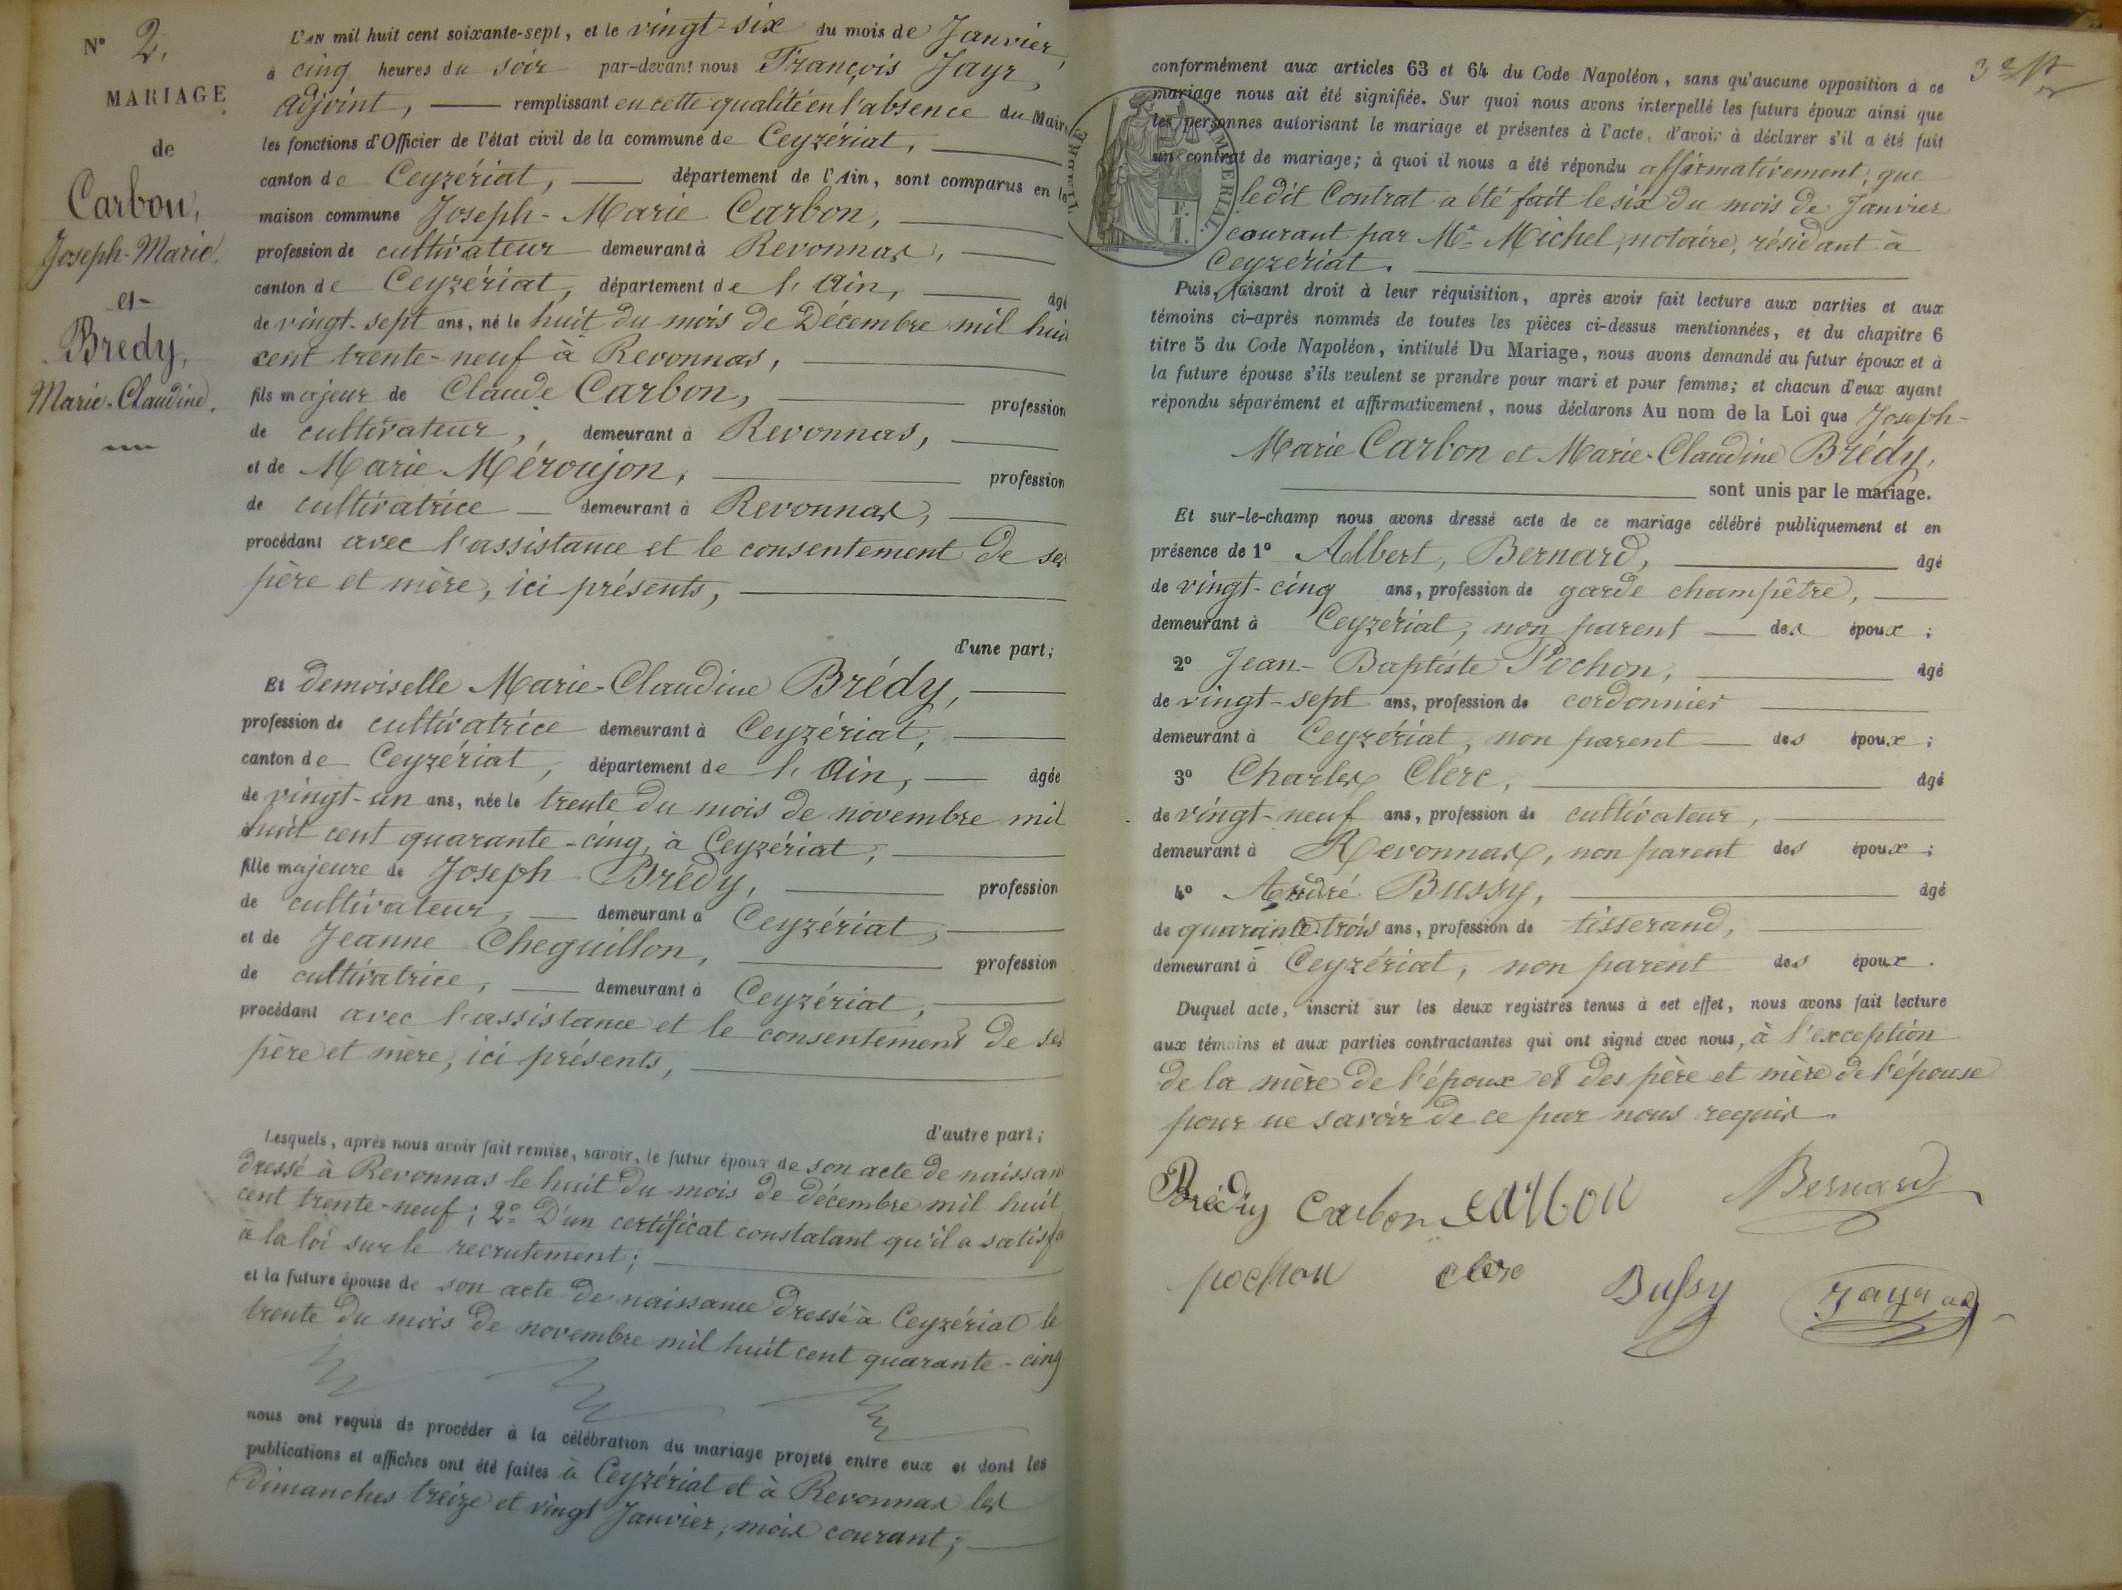 N° 2.
MARIAGE
de
Carbon,
Joseph-Marie.
et
Bredy,
Marie-Claudine.
L'AN mil huit cent soixante-sept, et le vingt-six du mois de Janvier,
à cinq heures du soir par-devant nous François Jayr
adjoint, remplissant en cette qualité en l'absence du Maire
les fonctions d'Officier de l'état civil de la commune de Ceyzériat,
canton de Ceyzériat, département de l'Ain, sont comparus en la
maison commune Joseph-Marie Carbon,
profession de cultivateur demeurant à Revonnas,
canton de Ceyzériat, département de l'Ain, âgé
de vingt-sept ans, né le huit du mois de Décembre mil huit
cent trente-neuf à Revonnas,
fils majeur de Claude Carbon, profession
de cultivateur, demeurant à Revonnas,
et de Marie Méroujon, profession
de cultivatrice demeurant à Revonnas,
procédant avec l'assistance et le consentement de ses
père et mère, ici présents,
d'une part;
Et demoiselle Marie-Claudine Brédy,
profession de cultivatrice demeurant à Ceyzériat,
canton de Ceyzériat, département de l'Ain, âgée
de vingt-un ans, née le trente du mois de novembre mil
huit cent quarante-cinq, à Ceyzériat,
fille majeure de Joseph Brédy, profession
de cultivateur, demeurant à Ceyzériat,
et de Jeanne Cheguillon, profession
de cultivatrice, demeurant à Ceyzériat,
procédant avec l'assistance et le consentement de ses
père et mère, ici présents,
d'autre part;
Lesquels, après nous avoir fait remise, savoir, le futur époux de son acte de naissan
dressé à Revonnas le huit du mois de décembre mil huit
cent trente-neuf; 2° D'un certificat constatant qu'il a satisfa
à la loi sur le recrutement;
et la future épouse de son acte de naissance dressé à Ceyzériat le
trente du mois de novembre mil huit cent quarante-cinq
nous ont requis de procéder à la célébration du mariage projeté entre eux et dont les
publications et affiches ont été faites à Ceyzériat et à Revonnas les
Dimanches treize et vingt Janvier, mois courant;
conformément aux articles 63 et 64 du Code Napoléon, sans qu'aucune opposition à ce
mariage nous ait été signifiée. Sur quoi nous avons interpellé les futurs époux ainsi que
les personnes autorisant le mariage et présentes à l'acte, d'avoir à déclarer s'il a été fait
un contrat de mariage; à quoi il nous a été répondu affirmativement, que
ledit Contrat a été fait le six du mois de Janvier
courant par Me Michel, notaire, résidant à
Ceyzériat.
Puis, faisant droit à leur réquisition, après avoir fait lecture aux parties et aux
témoins ci-après nommés de toutes les pièces ci-dessus mentionnées, et du chapitre 6
titre 5 du Code Napoléon, intitulé Du Mariage, nous avons demandé au futur époux et à
la future épouse s'ils veulent se prendre pour mari et pour femme; et chacun d'eux ayant
répondu séparément et affirmativement, nous déclarons Au nom de la Loi que Joseph-
Marie Carbon et Marie-Claudine Brédy,
sont unis par le mariage.
Et sur-le-champ nous avons dressé acte de ce mariage célébré publiquement et en
présence de 1° Albert, Bernard, âgé
de vingt-cinq ans, profession de garde champêtre,
demeurant à Ceyzériat, non parent des époux;
2° Jean-Baptiste Pochon, âgé
de vingt-sept ans, profession de cordonnier
demeurant à Ceyzériat, non parent des époux;
3° Charles Clerc, âgé
de vingt-neuf ans, profession de cultivateur,
demeurant à Revonnas, non parent des époux;
4° André Bussy, âgé
de quarante trois ans, profession de tisserand,
demeurant à Ceyzériat, non parent des époux.
Duquel acte, inscrit sur les deux registres tenus à cet effet, nous avons fait lecture
aux témoins et aux parties contractantes qui ont signé avec nous, à l'exception
de la mère de l'époux et des père et mère de l'épouse
pour ne savoir de ce par nous requis.
Brédy Carbon Carbon Bernard
pochon clerc Bussy Jayr adj